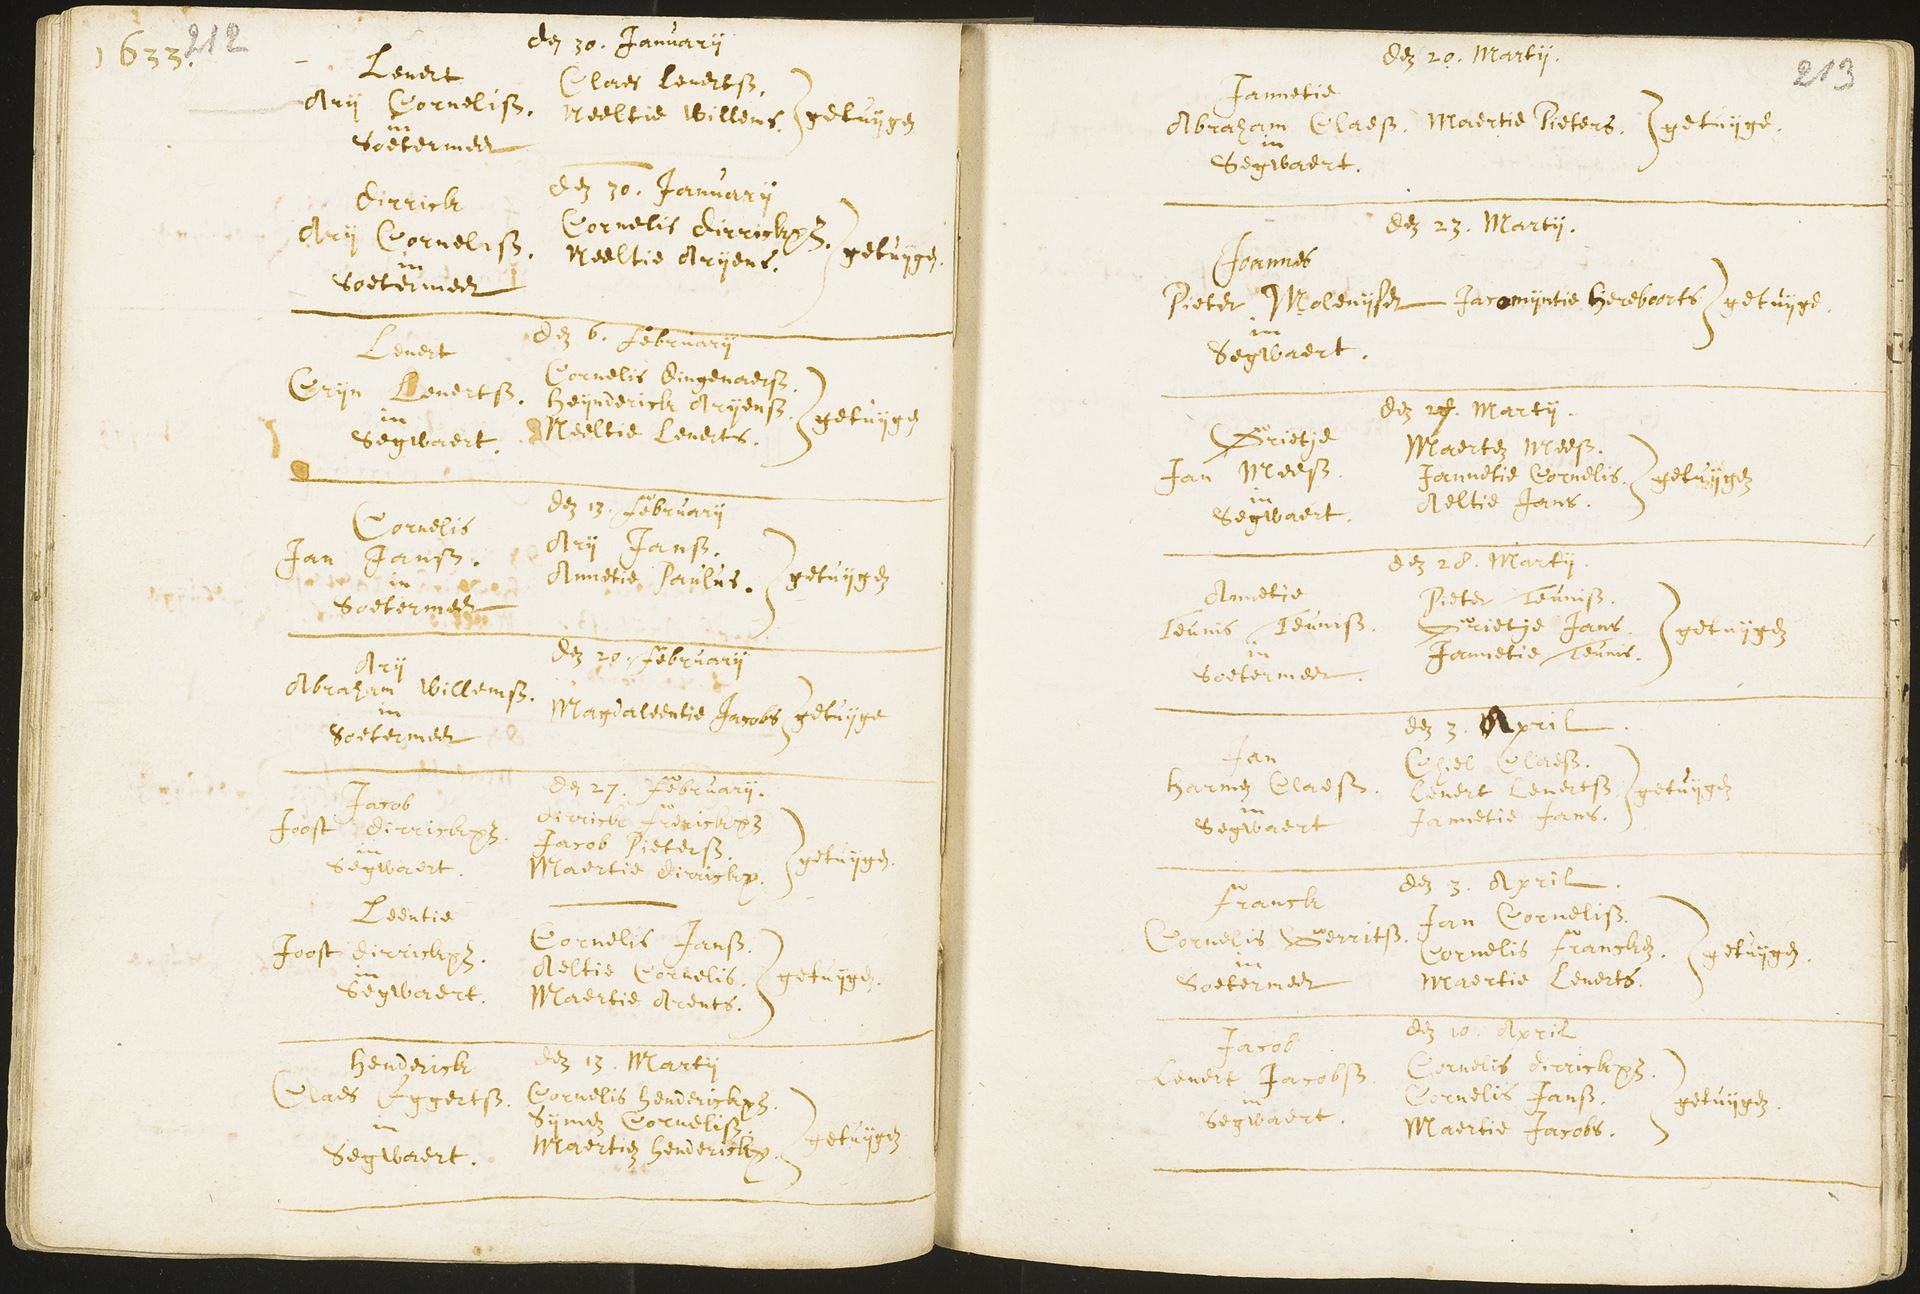 1633.
212
den 30. January
Lenert
Ary Cornelisz.
in
Soetermeer
Claes Lenertsz.
Neeltie Willems.
getuygen
den 30. January
Dirrick
Ary Cornelisz.
in
Soetermeer
Cornelis Dirrickxz.
Neeltie Aryens.
getuygen.
den 6. February
Lenert
Cryn Lenertsz.
in
Segwaert.
Cornelis Dingenaersz.
Heynderick Aryensz.
Neeltie Lenerts.
getuygen
den 13. February
Cornelis
Jan Jansz.
in
Soetermeer
Ary Jansz.
Annetie Paulus.
getuygen
den 20. February
Ary
Abraham Willemsz.
in
Soetermeer
Magdaleentie Jacobs
getuyge
den 27. February.
Jacob
Joost Dirrickxz.
in
Segwaert.
Dirrick Frerickxz
Jacob Pietersz.
Maertie Dirrickx.
getuygen.
Leentie
Joost Dirrickxz.
in
Segwaert.
Cornelis Jansz.
Aeltie Cornelis.
Maertie Arents.
getuygen.
den 13. Marty
Henderick
Claes Eggertsz.
in
Segwaert.
Cornelis Henderickxz.
Symen Cornelisz.
Maertien Henderickx.
getuygen
213
den 20. Marty.
Jannetie
Abraham Claesz.
in
Segwaert.
Maertie Pieters.
getuyge.
den 23. Marty.
Joannes
Pieter Molenyser
in
Segwaert.
Jacomyntie Hereboorts
getuyge.
den 27. Marty.
Grietje
Jan Meesz.
in
Segwaert.
Maerten Meesz.
Jannetie Cornelis.
Aeltie Jans.
getuygen
den 28. Marty.
Annetie
Teunis Teunisz.
in
Soetermeer.
Pieter Teunisz.
Grietje Jans.
Jannetie Teunis.
getuygen
den 3. April.
Jan
Harmen Claesz.
in
Segwaert
Chiel Claesz.
Lenert Lenertsz.
Jannetie Jans.
getuygen
den 3. April.
Franck
Cornelis Gerritsz.
in
Soetermeer
Jan Cornelisz.
Cornelis Francken.
Maertie Lenerts.
getuygen.
den 10. April
Jacob
Lenert Jacobsz.
in
Segwaert.
Cornelis Dirrickxz.
Cornelis Jansz.
Maertie Jacobs.
getuygen.